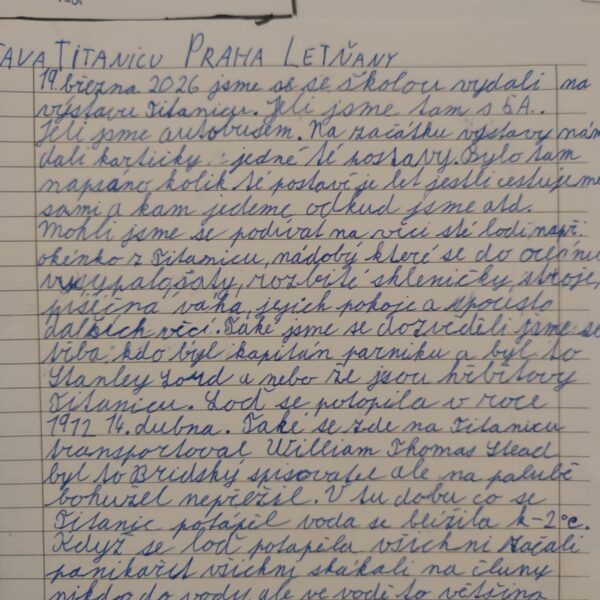 TAVA TITANICU PRAHA LETŇANY
19. března 2026 jsme se se školou vydali na
výstavu Titanicu. Jeli jsme tam s 5.A..
Jeli jsme autobusem. Na začátku výstavy nám
dali kartičky jedné té postavy. Bylo tam
napsáno kolik té postavě je let jestli cestujeme
sami a kam jedeme odkud jsme atd.
Mohli jsme se podívat na věci sté lodi např.
okénko z Titanicu, nádobý které se do oceánu
vysypalo, šaty, rozbité skleničky, stroje,
písčina váha, jejich pokoje a spousto
dalších věcí. Také jsme se dozvěděli jsme se
třba kdo byl kapitán parniku a byl to
Stanley Lord a nebo že jsou hřbitovy
Titanicu. Loď se potopila v roce
1912 14. dubna. Také se zde na Titanicu
transportoval William Thomas Stead
byl to Bridský spisovatel ale na palubě
bohužel nepřežil. V tu dobu co se
Titanic potápěl voda se blížila k -2°c.
Když se loď potápěla všichni začali
panikařit všichni skákali na čluny
někdo do vody ale ve vodě to většina